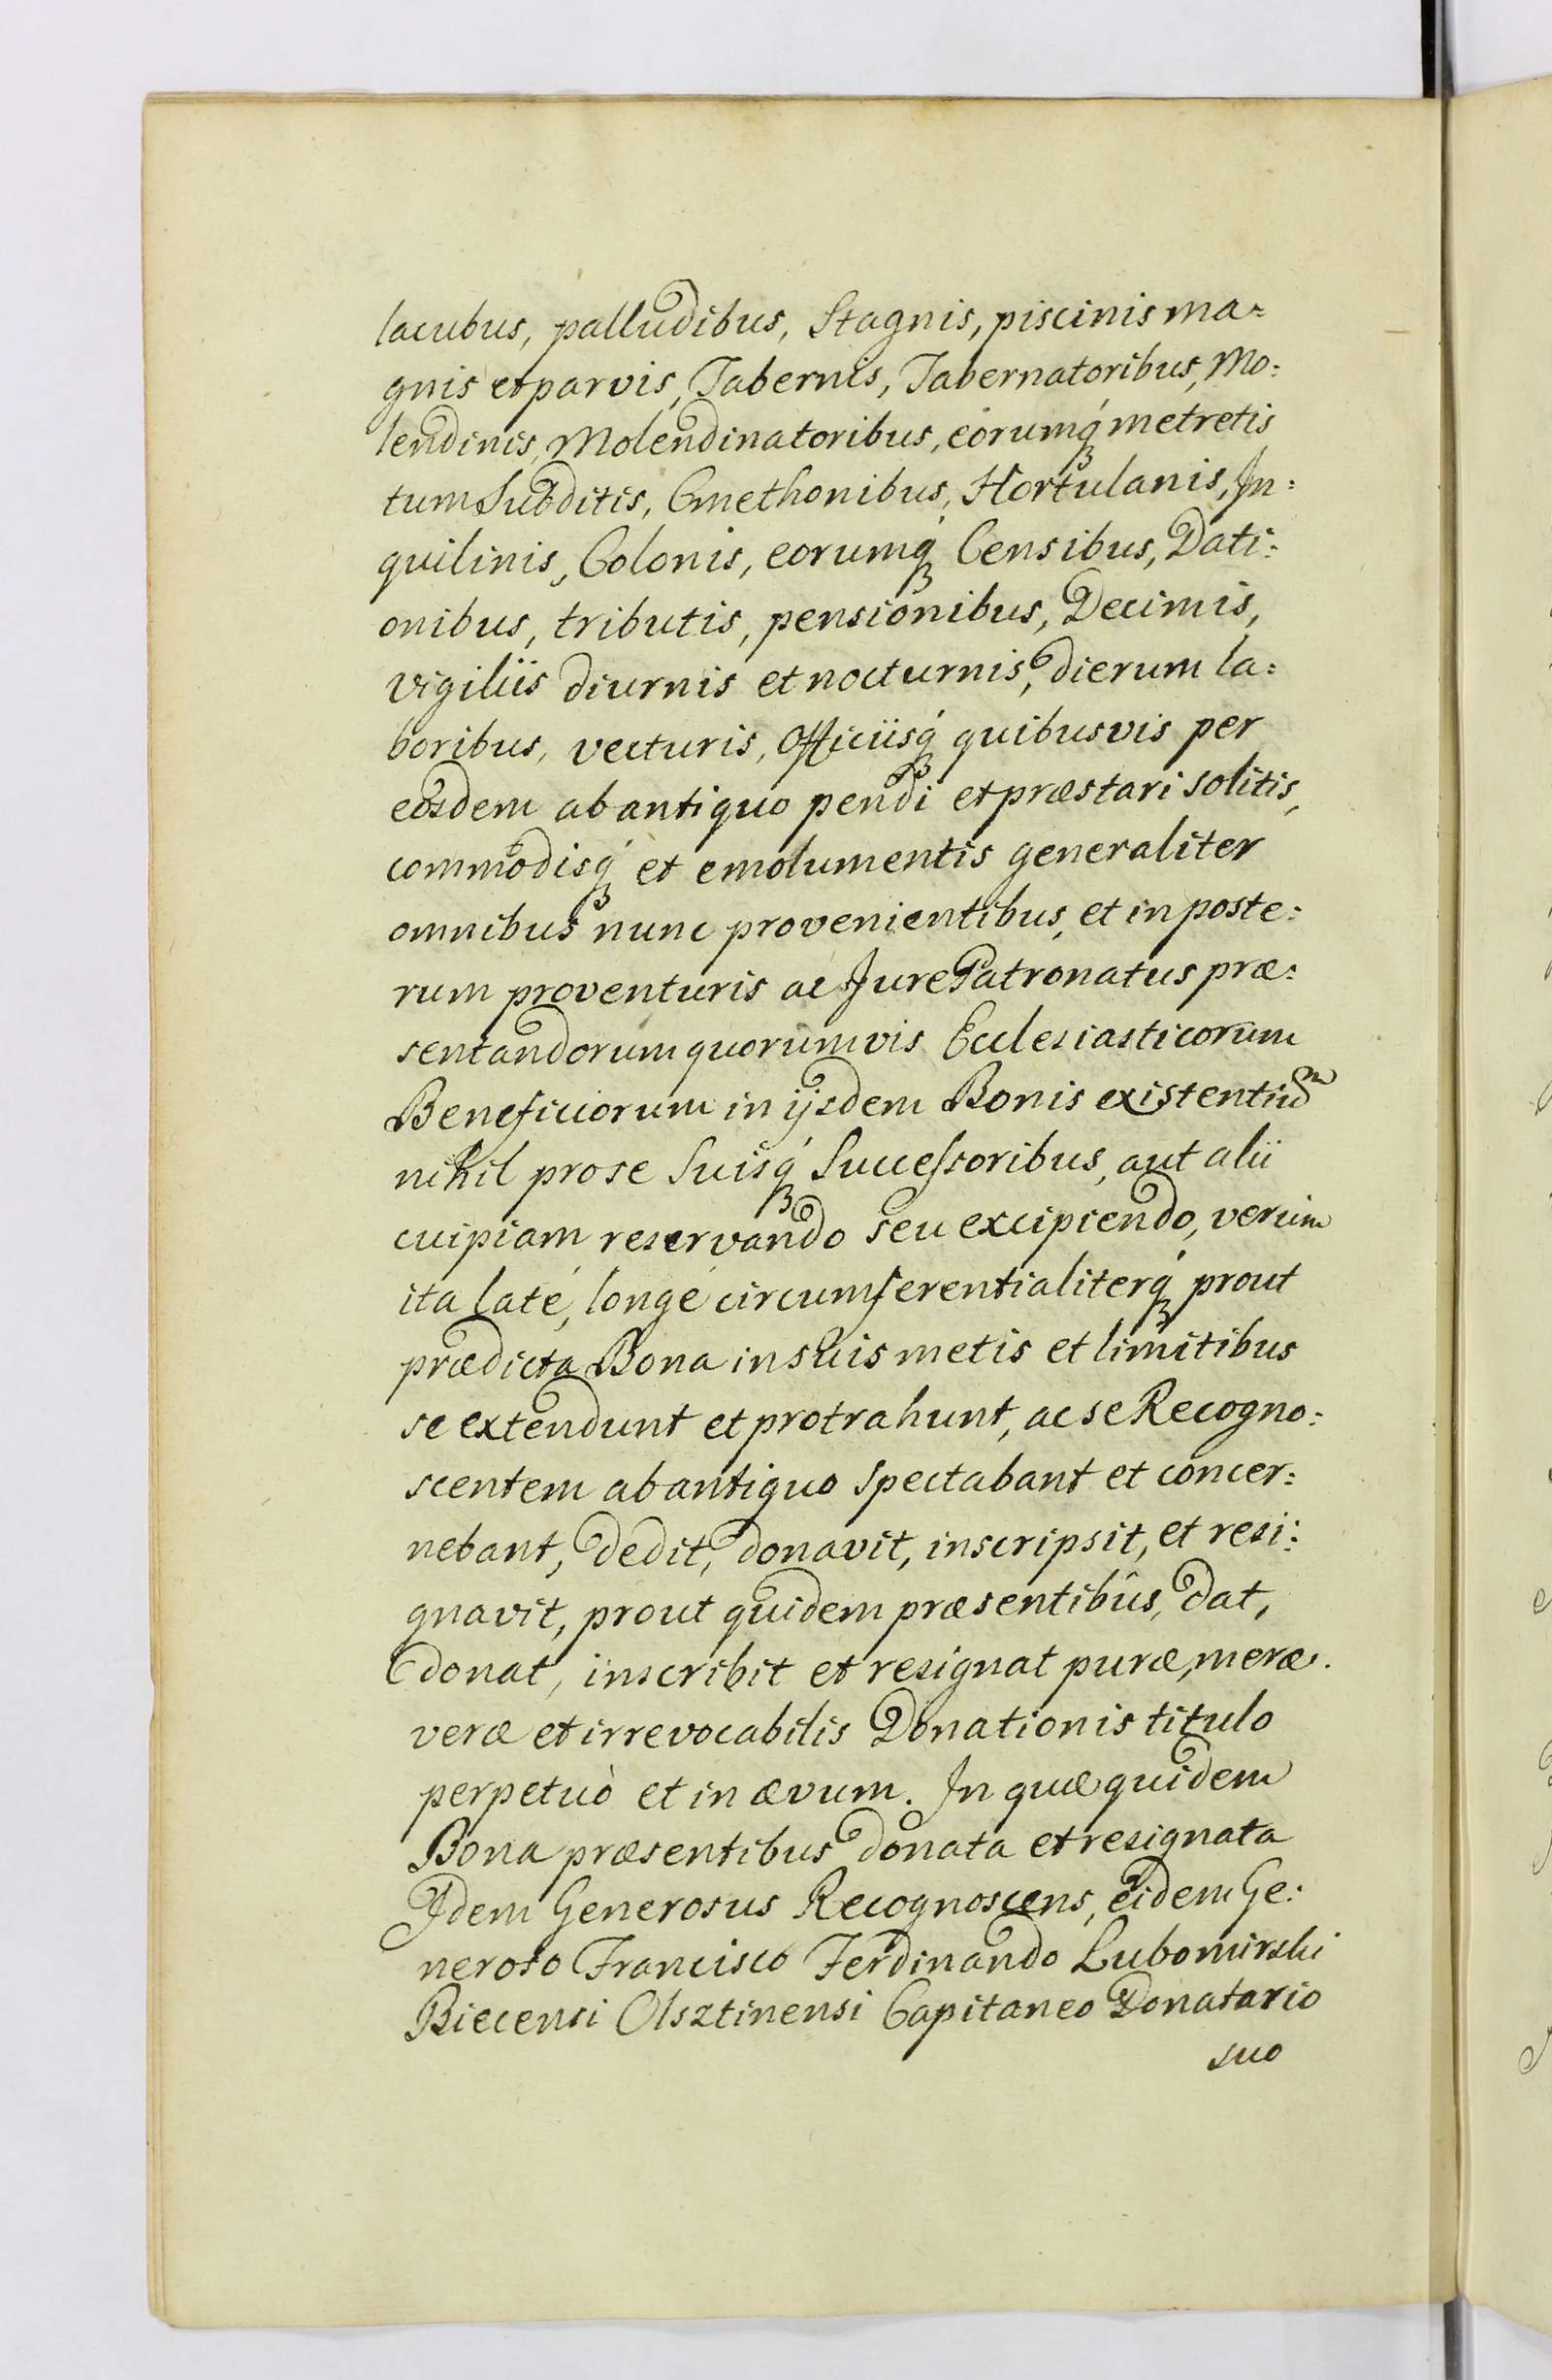 lacubus, palludibus, Stagnis, piscinis ma=
gnis et parvis, Tabernis, Tabernatoribus, Mo:
lendinis, Molendinatoribus, eorumq́ꝫ metretis
tum Subditis, Cmethonibus, Hortulanis, In:
quilinis, Colonis, eorumq́ꝫ Censibus, Dati:
onibus, tributis, pensionibus, Decimis,
vigiliis diurnis et nocturnis, dierum la:
boribus, vecturis, Officiisq́ꝫ quibusvis per
eosdem ab antiquo pendi et præstari solitis,
commodisq́ꝫ et emolumentis generaliter
omnibus nunc provenientibus, et in poste:
rum proventuris ac Jure Patronatus præ:
sentandorum quorumvis Ecclesiasticorum
Beneficiorum in ijsdem Bonis existentium
nihil pro se Suisq́ꝫ Successoribus, aut alii
cuipiam reservando seu excipiendo, verum
ita laté, longé circumferentialiterq́ꝫ prout
prædicta Bona in suis metis et limitibus
se extendunt et protrahunt, ac se Recogno:
scentem ab antiquo spectabant et concer:
nebant, dedit, donavit, inscripsit, et resi:
gnavit, prout quidem præsentibus, dat,
donat, inscribit et resignat puræ, meræ.
veræ et irrevocabilis Donationis titulo
perpetuò et in ævum. In quæ quidem
Bona præsentibus donata et resignata
Idem Generosus Recognoscens, eidem Ge:
neroso Francisco Ferdinando Lubomirski
Biecensi Olsztinensi Capitaneo Donatario
suo